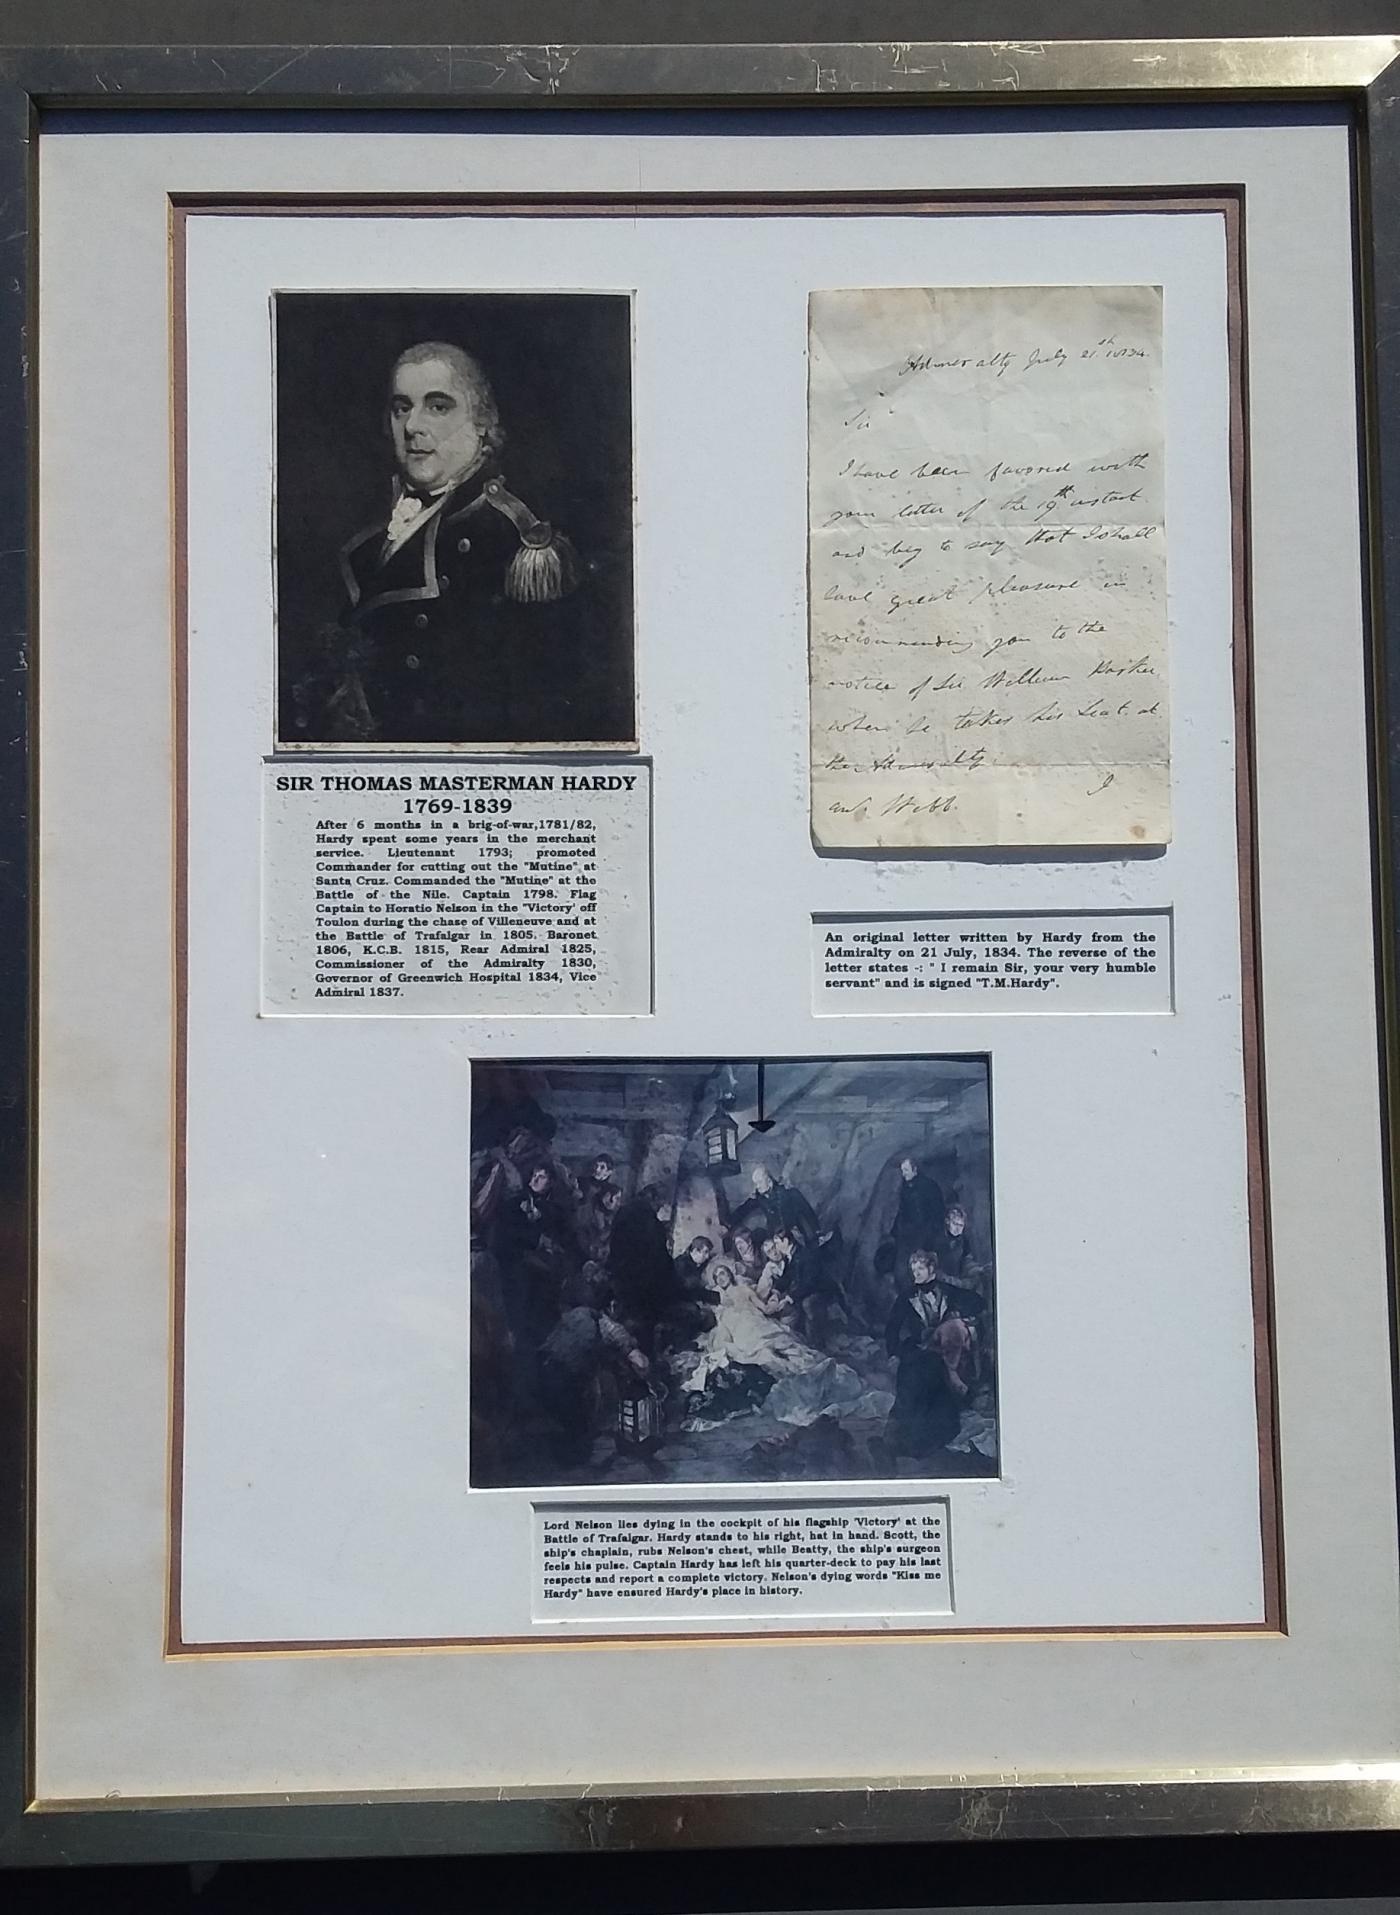 SIR THOMAS MASTERMAN HARDY
1769-1839
After 6 months in a brig-of-war,1781/82,
Hardy spent some years in the merchant
service. Lieutenant 1793; promoted
Commander for cutting out the "Mutine" at
Santa Cruz. Commanded the "Mutine" at the
Battle of the Nile. Captain 1798. Flag
Captain to Horatio Nelson in the 'Victory' off
Toulon during the chase of Villeneuve and at
the Battle of Trafalgar in 1805. Baronet
1806, K.C.B. 1815, Rear Admiral 1825,
Commissioner of the Admiralty 1830,
Governor of Greenwich Hospital 1834, Vice
Admiral 1837.
Admiralty July 21st 1834.
Sir
I have been favored with
your letter of the 19th instant
and beg to say that I shall
have great pleasure in
recommending you to the
notice of Sir William Parker
when he takes his Seat at
the Admiralty.
I
Webb.
An original letter written by Hardy from the
Admiralty on 21 July, 1834. The reverse of the
letter states -: " I remain Sir, your very humble
servant" and is signed "T.M.Hardy".
Lord Nelson lies dying in the cockpit of his flagship 'Victory' at the
Battle of Trafalgar. Hardy stands to his right, hat in hand. Scott, the
ship's chaplain, rubs Nelson's chest, while Beatty, the ship's surgeon
feels his pulse. Captain Hardy has left his quarter-deck to pay his last
respects and report a complete victory. Nelson's dying words "Kiss me
Hardy" have ensured Hardy's place in history.